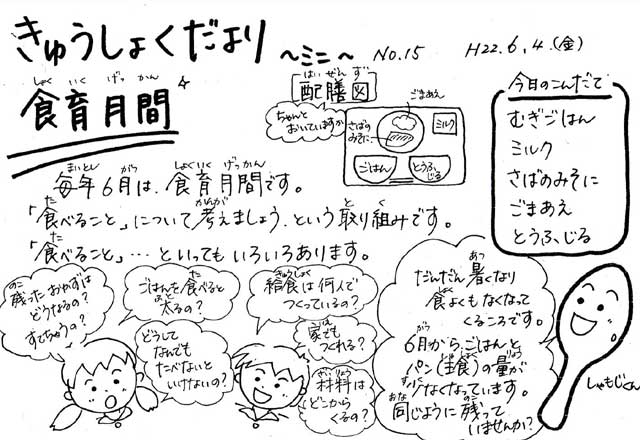 きゅうしょくだより ～ミニ～ No.15 H22.6.4.(金)
しょく いく げっ かん
食育月間
はい ぜん ず
配膳図
ちゃんと
おいていますか
ごまあえ
さばの
みそに
ミルク
ごはん
とうふ
じる
今日のこんだて
むぎごはん
ミルク
さばのみそに
ごまあえ
とうふじる
まいとし がつ しょくいく げっかん
毎年6月は、食育月間です。
た かんが と く
「食べること」について考えましょう、という取り組みです。
た
「食べること」…といってもいろいろあります。
のこ
残ったおかずは
どうなるの?
すてちゃうの?
た
ごはんを食べると
ふと
太るの?
どうして
なんでも
たべないと
いけないの?
きゅうしょく
給食は何人で
つくっているの?
いえ
家でも
つくれる?
ざいりょう
材料は
どこから
くるの?
あつ
だんだん暑くなり
しょく
食よくもなくなって
くるころです。
がつ
6月から、ごはんと
しゅしょく りょう
パン(主食)の量が
すく
少なくなっています。
おな のこ
同じように残って
いませんか?
しゃもじくん